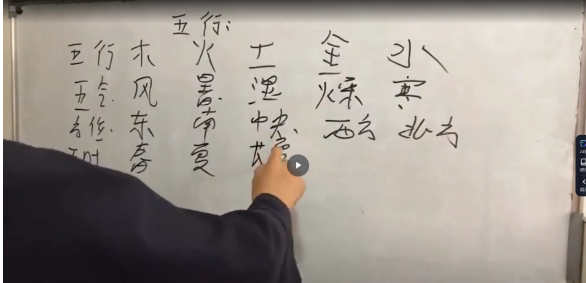 五行:
五行 木 火 土 金 水
五气 风 暑 湿 燥 寒
方位 东 南 中央 西方 北方
五时 春 夏 长夏